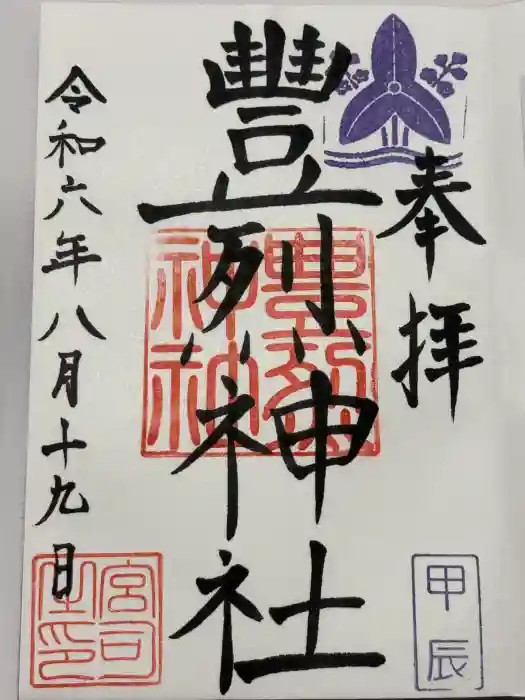 奉拝
豐烈神社
令和六年八月十九日
豊烈神社
甲辰
宮司之印